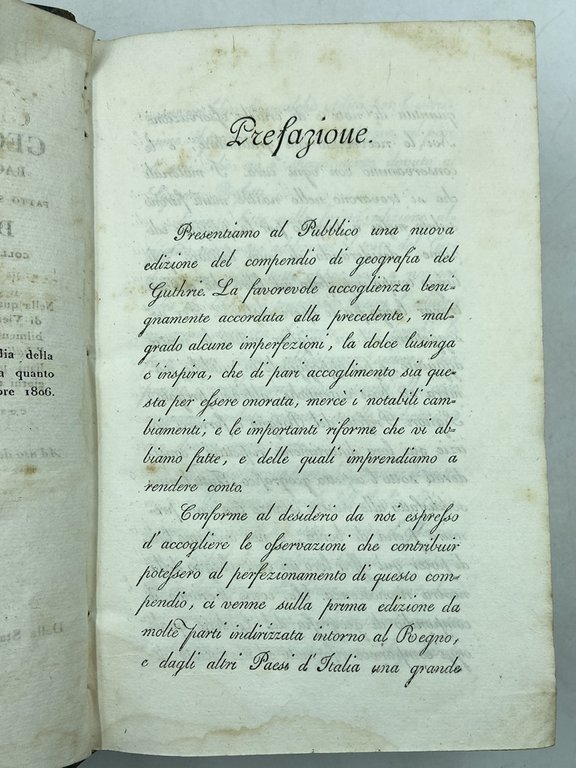 Prefazione.
Presentiamo al Pubblico una nuova
edizione del compendio di geografia del
Guthrie. La favorevole accoglienza beni-
gnamente accordata alla precedente, mal-
grado alcune imperfezioni, la dolce lusinga
c'inspira, che di pari accoglimento sia que-
sta per essere onorata, mercè i notabili cam-
biamenti, e le importanti riforme che vi ab-
biamo fatte, e delle quali imprendiamo a
rendere conto.
Conforme al desiderio da noi espresso
d'accogliere le osservazioni che contribuir
potessero al perfezionamento di questo com-
pendio, ci venne sulla prima edizione da
molte parti indirizzata intorno al Regno,
e dagli altri Paesi d'Italia una grande
dia della
a quanto
bre 1806.